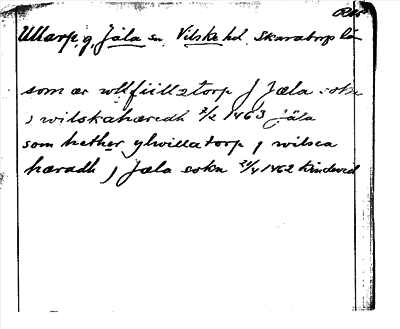 Ullarp, g, Jäla sn Vilske hd. Skaraborgs län
som ær wllfiillatorp j Jæla sokn
j wilskahæredh 7/2 1463 jäla
som hether ylwillatorp j wilsca
hæradh j Jæla sokn 21/4 1462 Kindevad